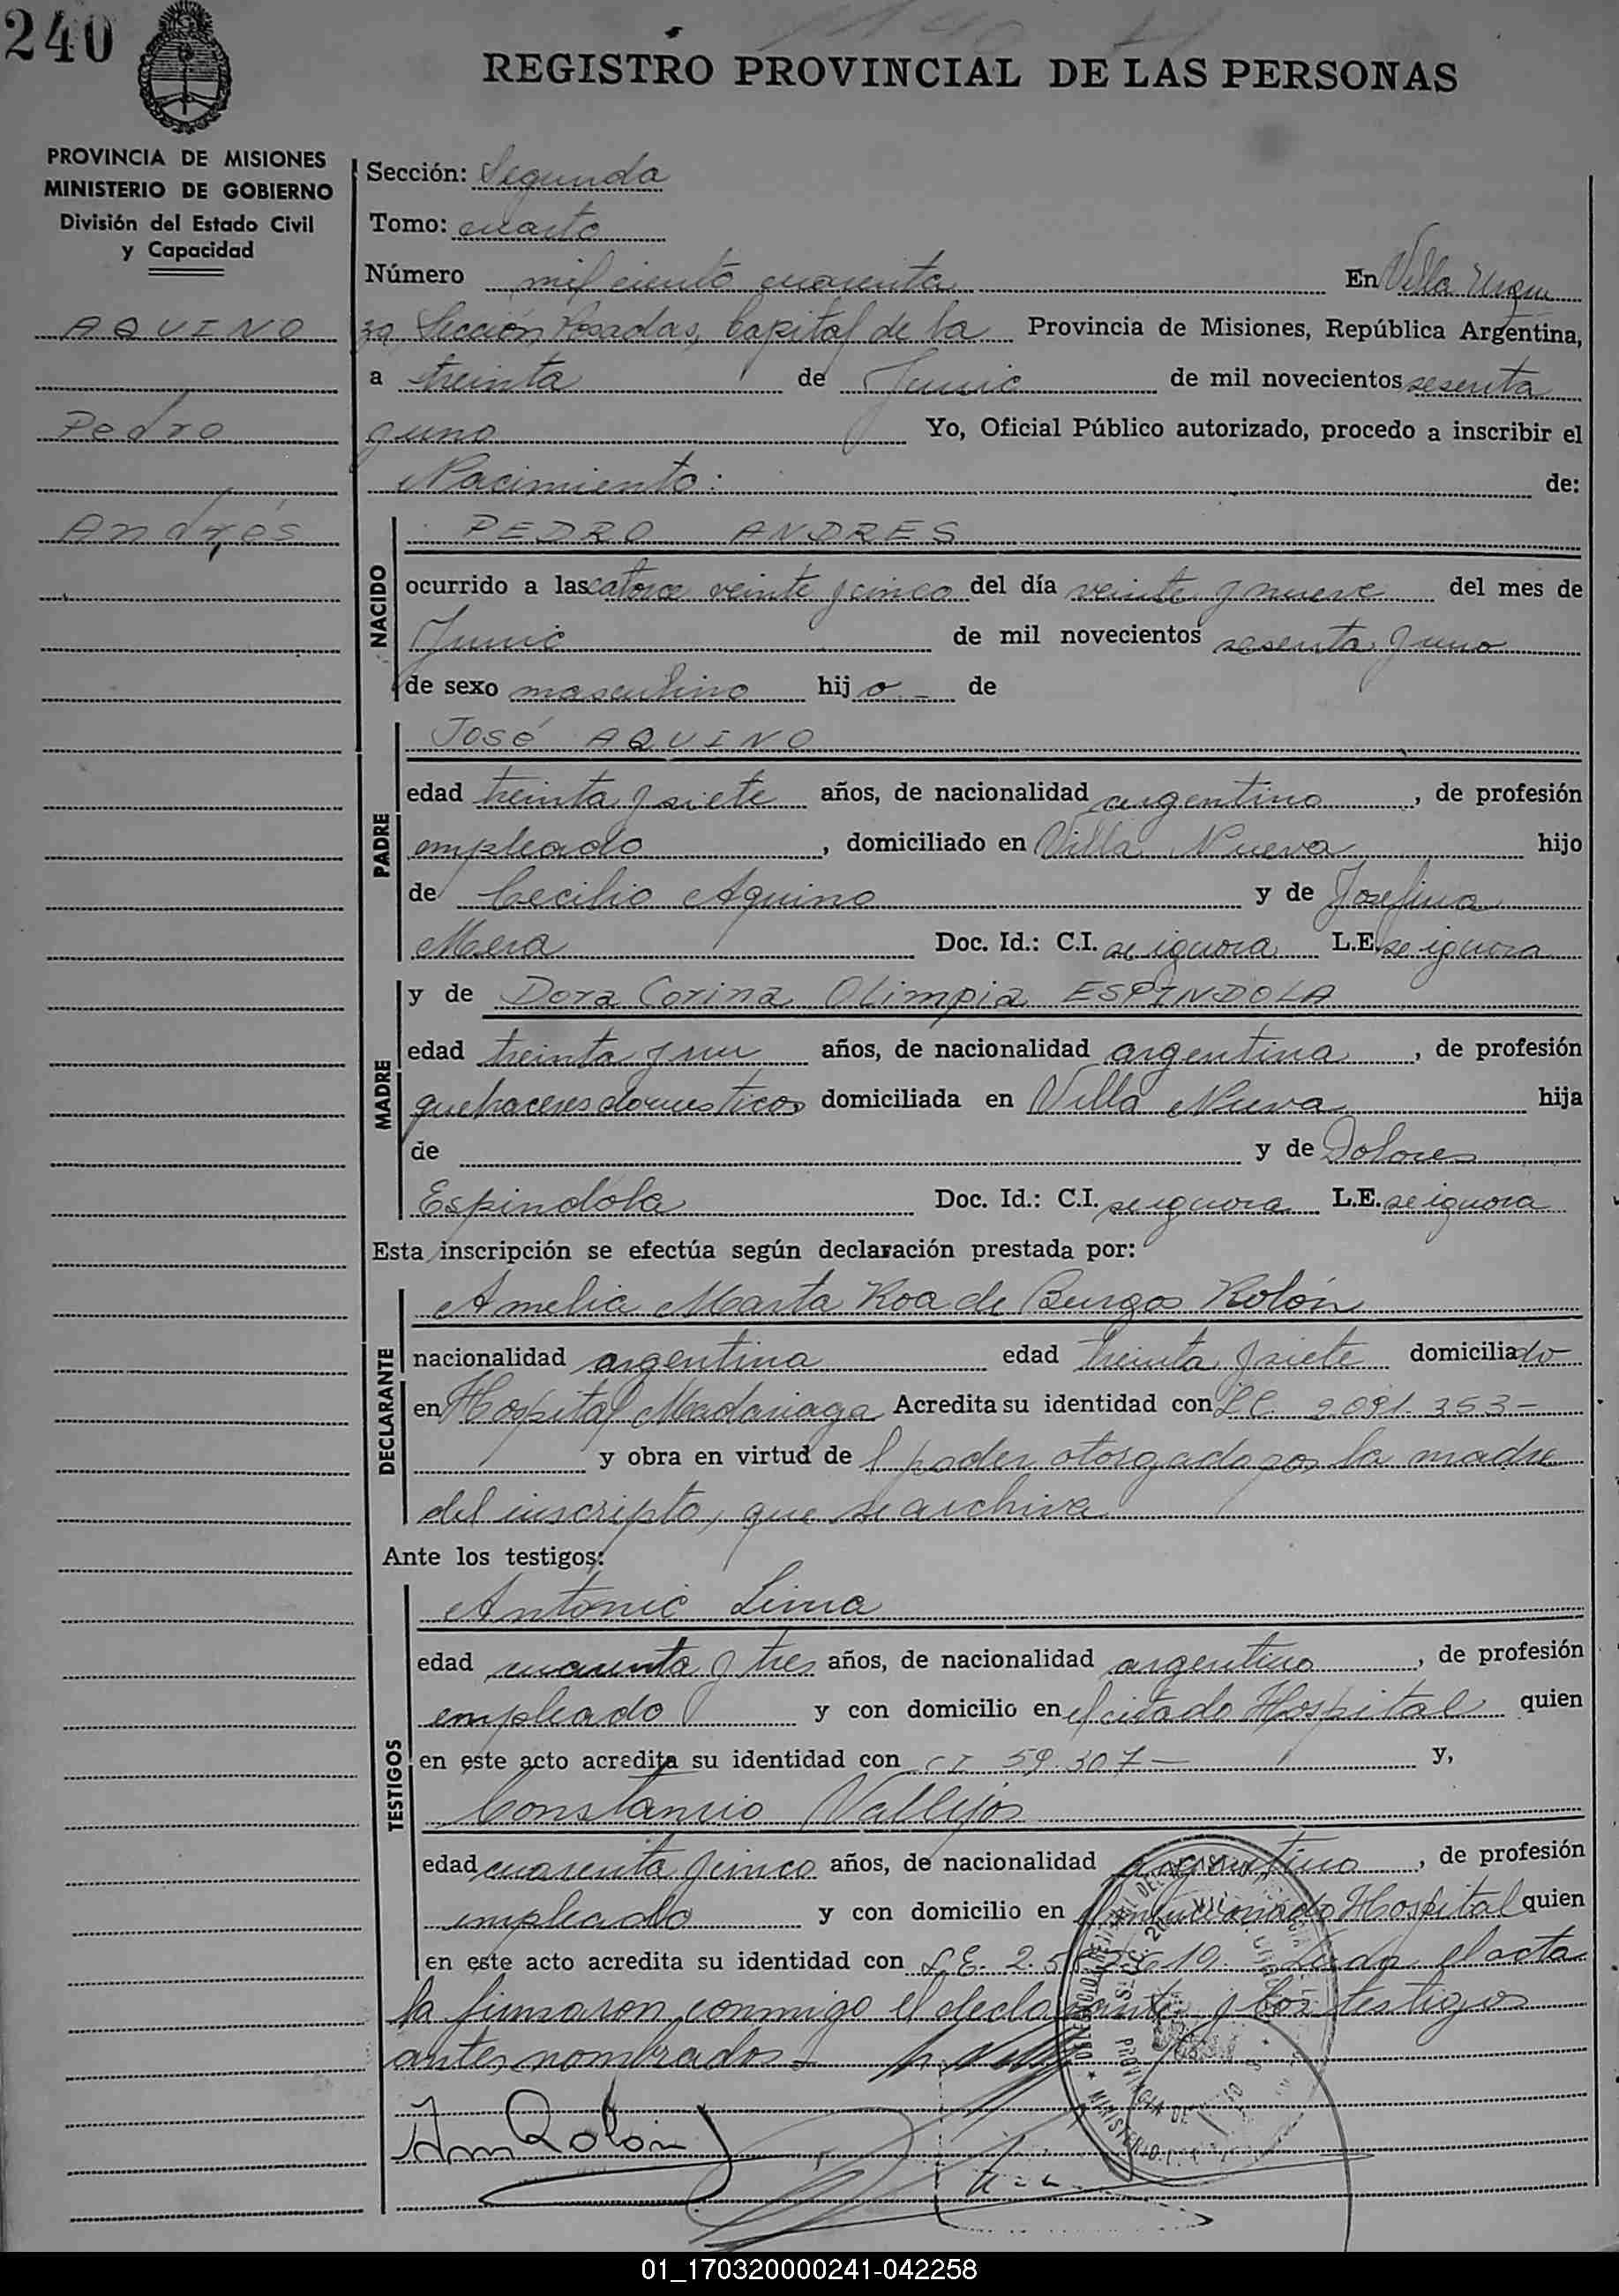 240
REGISTRO PROVINCIAL DE LAS PERSONAS
PROVINCIA DE MISIONES
MINISTERIO DE GOBIERNO
División del Estado Civil
y Capacidad
AQUINO
Pedro
Andrés
Sección: Segunda
Tomo: cuarto
Número mil ciento cuarenta En Villa Urqui
za Sección Posadas, Capital de la Provincia de Misiones, República Argentina,
a treinta de Junio de mil novecientos sesenta
y uno Yo, Oficial Público autorizado, procedo a inscribir el
Nacimiento: de:
NACIDO
PEDRO ANDRES
ocurrido a las catorce veinte y cinco del día veinte y nueve del mes de
Junio de mil novecientos sesenta y uno
de sexo masculino hijo - de
PADRE
José AQUINO
edad treinta y siete años, de nacionalidad argentino, de profesión
empleado, domiciliado en Villa Nueva hijo
de Cecilio Aquino y de Josefina
Mera Doc. Id.: C.I. se ignora L.E. se ignora
MADRE
y de Dora Corina Olimpia ESPINDOLA
edad treinta y un años, de nacionalidad argentina, de profesión
quehaceres domesticos domiciliada en Villa Nueva hija
de y de Dolores
Espindola Doc. Id.: C.I. se ignora L.E. se ignora
Esta inscripción se efectúa según declaración prestada por:
DECLARANTE
Amelia Marta Roa de Burgos Rolón
nacionalidad argentina edad treinta y siete domiciliado
en Hospital Madariaga Acredita su identidad con L.C. 2.091.353-
y obra en virtud de l poder otorgado por la madre
del inscripto, que se archiva
Ante los testigos:
TESTIGOS
Antonio Lima
edad cuarenta y tres años, de nacionalidad argentino, de profesión
empleado y con domicilio en el citado Hospital quien
en este acto acredita su identidad con CI 59.307- y,
Constancio Vallejos
edad cuarenta y cinco años, de nacionalidad argentino, de profesión
empleado y con domicilio en el mencionado Hospital quien
en este acto acredita su identidad con L.E. 2.5 Leida el acta
la firmaron conmigo el declarante y los testigos
antes nombrados-
Am Rolón
PROVINCIA DE
MINISTERIO
01_170320000241-042258